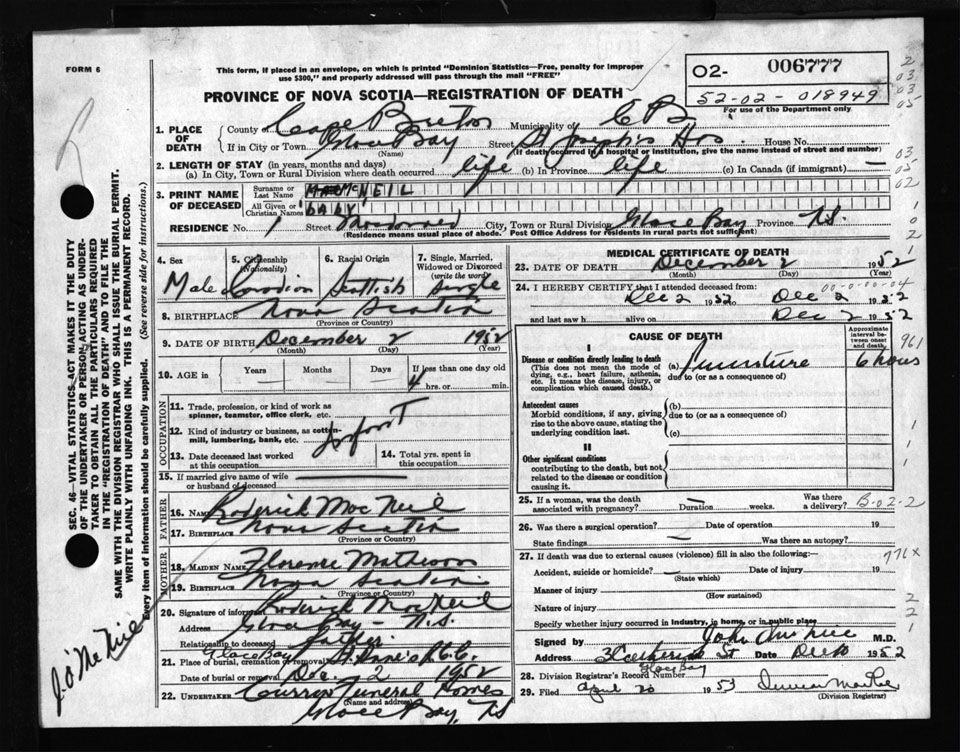 FORM 6
This form, if placed in an envelope, on which is printed "Dominion Statistics—Free, penalty for improper
use $300," and properly addressed will pass through the mail "FREE"
PROVINCE OF NOVA SCOTIA—REGISTRATION OF DEATH
02- 006777
52-02-018949
For use of the Department only
1. PLACE OF DEATH County of Cape Breton Municipality of C B
If in City or Town Glace Bay Street St Joseph's Hos House No.
(Name) (If death occurred in a hospital or institution, give the name instead of street and number)
2. LENGTH OF STAY (in years, months and days)
(a) In City, Town or Rural Division where death occurred life (b) In Province life (c) In Canada (if immigrant) —
3. PRINT NAME OF DECEASED Surname or Last Name McNEIL
All Given or Christian Names BABY
RESIDENCE No. 1 Street City, Town or Rural Division Glace Bay Province N.S.
(Residence means usual place of abode. Post Office Address for residents in rural parts not sufficient)
4. Sex 5. Citizenship (Nationality) 6. Racial Origin 7. Single, Married, Widowed or Divorced (write the word)
Male Canadian Scottish Single
8. BIRTHPLACE Nova Scotia
(Province or Country)
9. DATE OF BIRTH December 2 1952
(Month) (Day) (Year)
10. AGE in Years Months Days If less than one day old
4 hrs. or min.
OCCUPATION
11. Trade, profession, or kind of work as spinner, teamster, office clerk, etc.
12. Kind of industry or business, as cotton-mill, lumbering, bank, etc. Infant
13. Date deceased last worked at this occupation
14. Total yrs. spent in this occupation
15. If married give name of wife or husband of deceased
FATHER
16. NAME Roderick MacNeil
17. BIRTHPLACE Nova Scotia
(Province or Country)
MOTHER
18. MAIDEN NAME Florence Matheson
19. BIRTHPLACE Nova Scotia
(Province or Country)
20. Signature of informant Roderick MacNeil
Address Glace Bay - N.S.
Relationship to deceased father
21. Place of burial, cremation or removal Glace Bay St. Anne's R.C.C.
Date of burial or removal Dec. 2 1952
22. UNDERTAKER Curren Funeral Homes
(Name and address)
Glace Bay, NS
MEDICAL CERTIFICATE OF DEATH
23. DATE OF DEATH December 2 1952
(Month) (Day) (Year)
24. I HEREBY CERTIFY that I attended deceased from:
Dec 2 1952 Dec 2 1952
and last saw h alive on Dec 2 1952
CAUSE OF DEATH
Approximate interval between onset and death
I
Disease or condition directly leading to death
(This does not mean the mode of dying, e.g., heart failure, asthenia, etc. It means the disease, injury, or complication which caused death.)
(a) 6 hours
due to (or as a consequence of)
Antecedent causes
Morbid conditions, if any, giving rise to the above cause, stating the underlying condition last.
(b)
due to (or as a consequence of)
(c)
II
Other significant conditions
contributing to the death, but not related to the disease or condition causing it.
25. If a woman, was the death associated with pregnancy? — Duration weeks. Was there a delivery?
B-02-2
26. Was there a surgical operation? — Date of operation 19
State findings — Was there an autopsy?
27. If death was due to external causes (violence) fill in also the following:—
776x
Accident, suicide or homicide? — Date of injury 19
(State which)
Manner of injury
(How sustained)
Nature of injury
Specify whether injury occurred in industry, in home, or in public place
Signed by John M.D.
Address St Date Dec 1952
Glace Bay
28. Division Registrar's Record Number
29. Filed April 20 1953
(Division Registrar)
SEC. 46—VITAL STATISTICS ACT MAKES IT THE DUTY
OF THE UNDERTAKER OR PERSON ACTING AS UNDER-
TAKER TO OBTAIN ALL THE PARTICULARS REQUIRED
IN THE "REGISTRATION OF DEATH" AND TO FILE THE
SAME WITH THE DIVISION REGISTRAR WHO SHALL ISSUE THE BURIAL PERMIT.
WRITE PLAINLY WITH UNFADING INK. THIS IS A PERMANENT RECORD.
Every item of information should be carefully supplied. (See reverse side for instructions.)